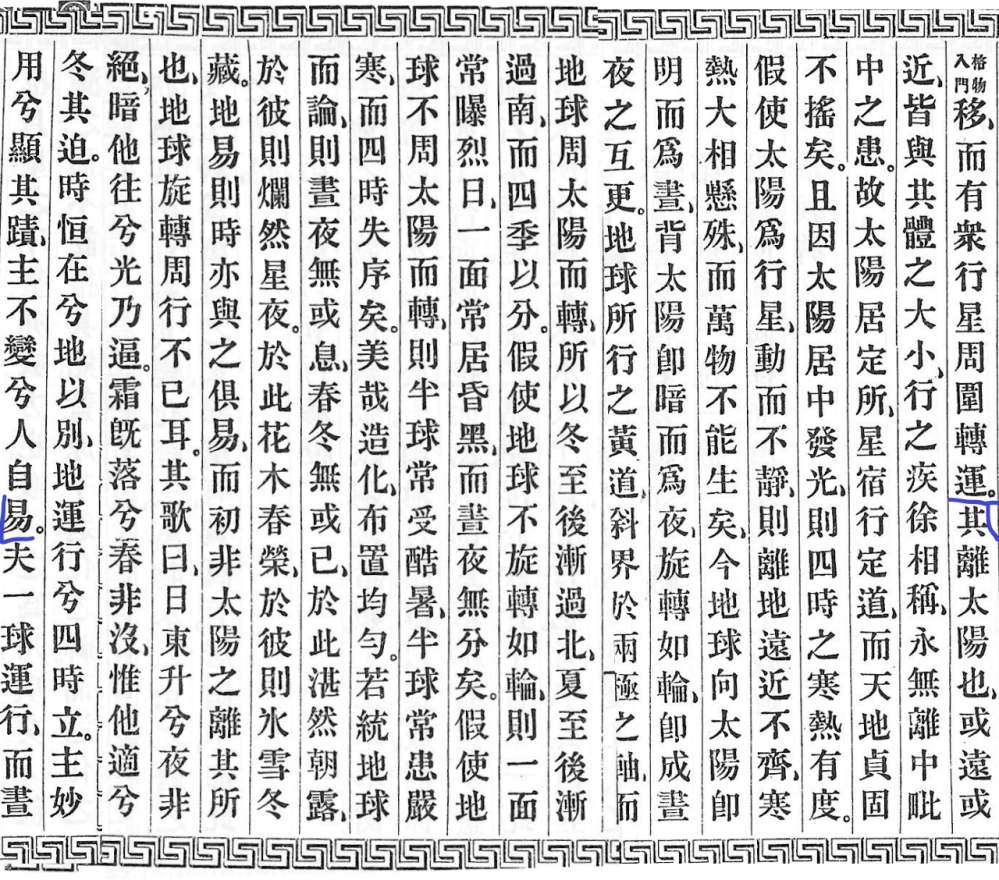 格物入門
移、而有衆行星周圍轉運。其離太陽也、或遠或
近、皆與其體之大小、行之疾徐相稱、永無離中毗
中之患。故太陽居定所、星宿行定道、而天地貞固
不搖矣。且因太陽居中發光、則四時之寒熱有度。
假使太陽爲行星、動而不靜、則離地遠近不齊、寒
熱大相懸殊、而萬物不能生矣、今地球向太陽卽
明而爲晝、背太陽卽暗而爲夜、旋轉如輪、卽成晝
夜之互更。地球所行之黃道、斜界於兩極之軸、而
地球周太陽而轉、所以冬至後漸過北、夏至後漸
過南、而四季以分。假使地球不旋轉如輪、則一面
常曝烈日、一面常居昏黑、而晝夜無分矣。假使地
球不周太陽而轉、則半球常受酷暑、半球常患嚴
寒、而四時失序矣。美哉造化、布置均勻。若統地球
而論、則晝夜無或息、春冬無或已、於此湛然朝露、
於彼則爛然星夜。於此花木春榮、於彼則氷雪冬
藏。地易則時亦與之俱易、而初非太陽之離其所
也、地球旋轉周行不已耳。其歌曰、日東升兮夜非
絕、暗他往兮光乃逼。霜旣落兮春非沒、惟他適兮
冬其迫。時恒在兮地以別、地運行兮四時立。主妙
用兮顯其蹟、主不變兮人自易。夫一球運行、而晝